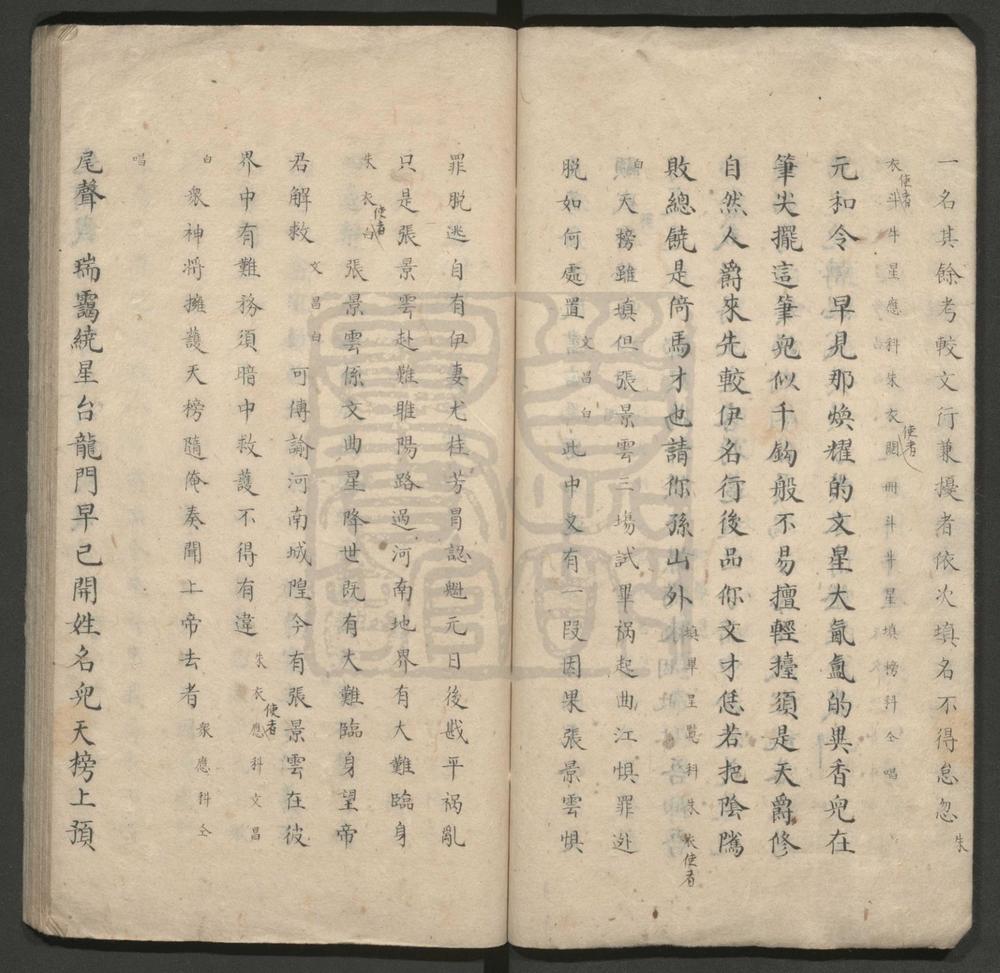 一名其餘考較文行兼擾者依次填名不得怠忽朱
衣使者斗牛星應科朱衣使者閱冊斗牛星填榜科仝唱
元和令早見那煥耀的文星大氤氳的異香兒在
筆尖擺這筆兒似千鈞般不易擅輕擡須是天爵修
自然人爵來先較伊名行後品你文才恁若把陰隲
敗總饒是倚馬才也請你孫山外填畢呈覽科朱衣使者
白天榜雖填但張景雲三塲試畢禍起曲江惧罪逃
脱如何處置文昌白此中又有一段因果張景雲惧
罪脱逃自有伊妻尤桂芳冒認魁元日後戡平禍亂
只是張景雲赴難睢陽路過河南地界有大難臨身
朱衣使者白張景雲係文曲星降世既有大難臨身望帝
君解救文昌白可傳諭河南城隍今有張景雲在彼
界中有難務須暗中救護不得有違朱衣使者應科文昌
白衆神將擁護天榜隨俺奏聞上帝去者衆應科仝
唱
尾聲瑞靄繞星台龍門早已開姓名兒天榜上預